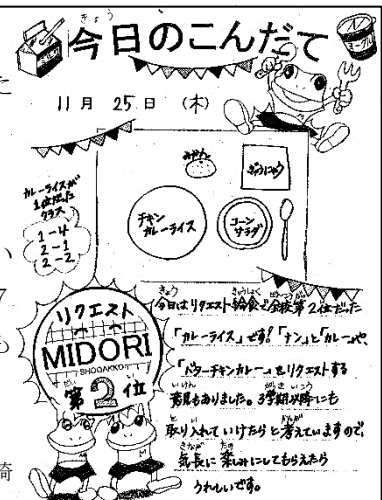 今日のこんだて
11月 25日 (木)
みかん
ぎゅうにゅう
チキン
カレーライス
コーン
サラダ
カレーライスが
1位だった
クラス
1-4
2-1
2-2
リクエスト
MIDORI
SHOGAKKO
第2位
今日はリクエスト給食で全校第2位だった
「カレーライス」です!「ナン」と「カレー」や、
「バターチキンカレー」をリクエストする
意見もありました。3学期以降にも
取り入れていけたらと考えていますので、
気長に楽しみにしてもらえたら
うれしいです。